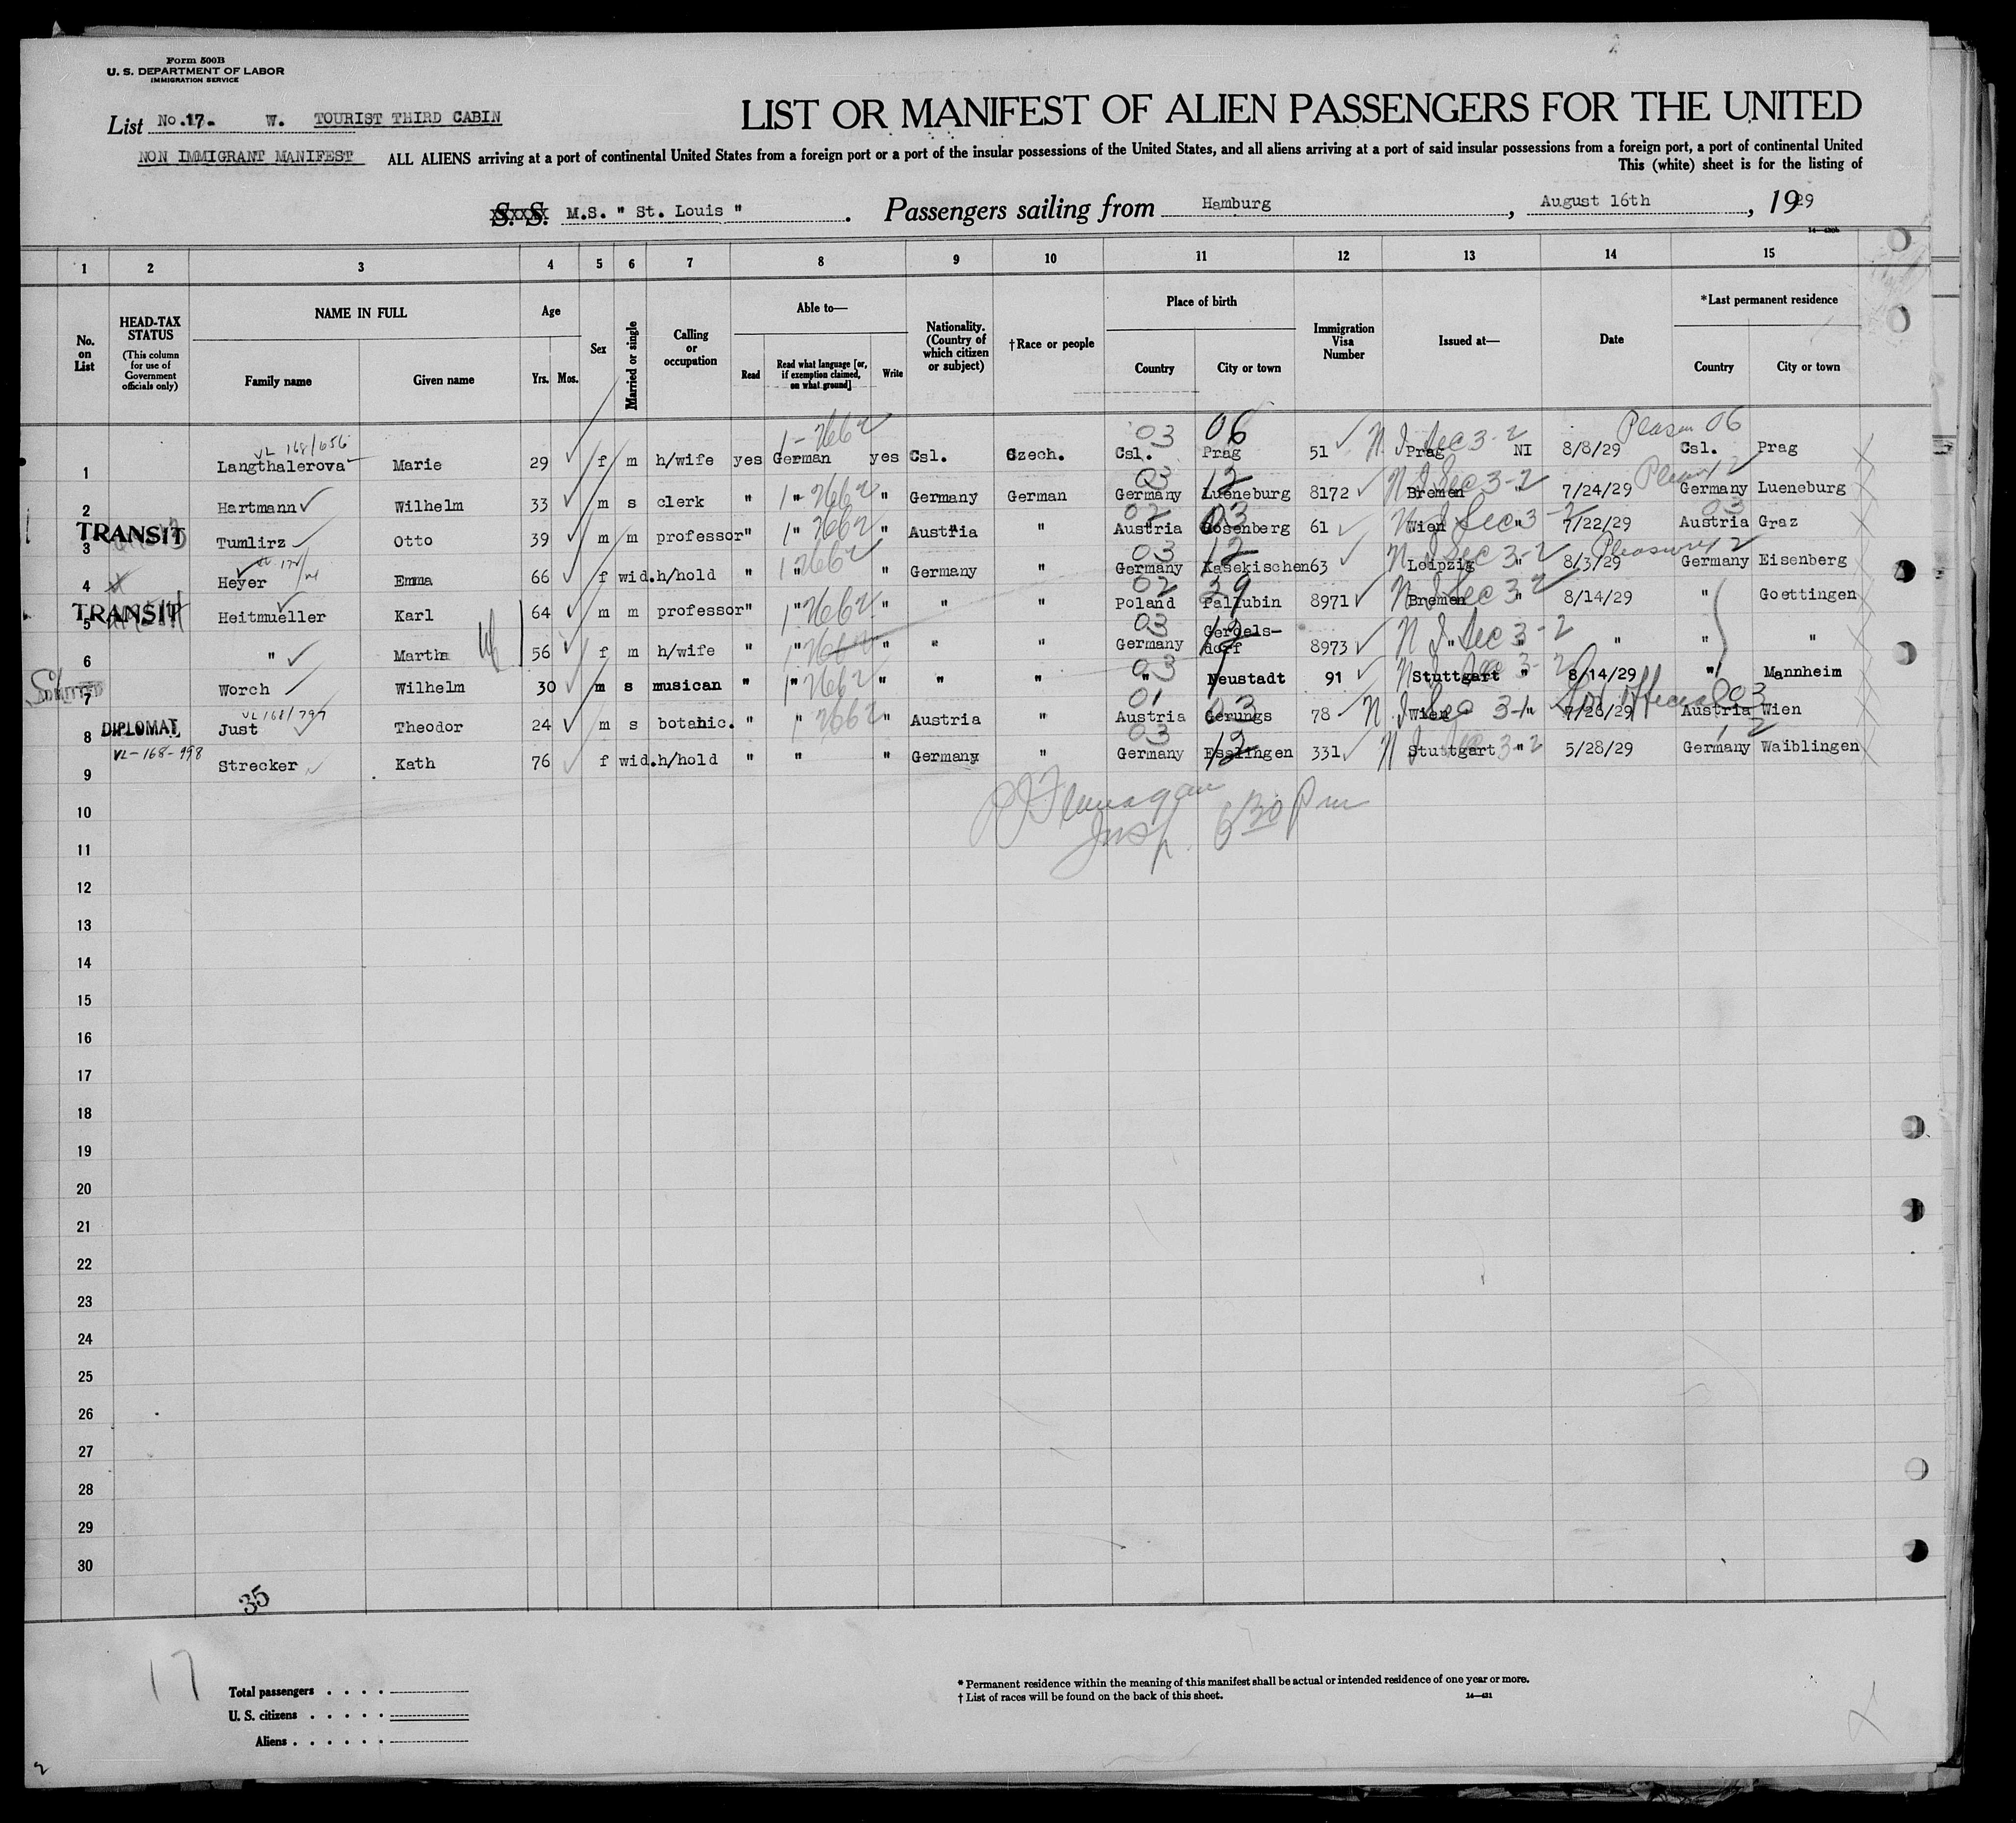 Form 500B
U. S. DEPARTMENT OF LABOR
IMMIGRATION SERVICE
List No.17. W. TOURIST THIRD CABIN
NON IMMIGRANT MANIFEST
LIST OR MANIFEST OF ALIEN PASSENGERS FOR THE UNITED
ALL ALIENS arriving at a port of continental United States from a foreign port or a port of the insular possessions of the United States, and all aliens arriving at a port of said insular possessions from a foreign port, a port of continental United
This (white) sheet is for the listing of
S. S. M.S. " St. Louis " . Passengers sailing from Hamburg , August 16th , 1929
1 2 3 4 5 6 7 8 9 10 11 12 13 14 15
No. on List
HEAD-TAX STATUS
(This column for use of Government officials only)
NAME IN FULL
Family name Given name
Age
Yrs. Mos.
Sex
Married or single
Calling or occupation
Able to—
Read
Read what language [or, if exemption claimed, on what ground]
Write
Nationality. (Country of which citizen or subject)
†Race or people
Place of birth
Country City or town
Immigration Visa Number
Issued at—
Date
*Last permanent residence
Country City or town
VL 168/656 1-2662 03 06 N I Sec 3-2 06
1 Langthalerova Marie 29 f m h/wife yes German yes Csl. Czech. Csl. Prag 51 Prag NI 8/8/29 Csl. Prag
1-2662 03 12 N I Sec 3-2
2 Hartmann Wilhelm 33 m s clerk " " " Germany German Germany Lueneburg 8172 Bremen " 7/24/29 Germany Lueneburg
1 2662 02 03 N I Sec 3-2 03
TRANSIT
3 Tumlirz Otto 39 m m professor " " " Austria " Austria Rosenberg 61 Wien " 7/22/29 Austria Graz
1 2662 03 12 N I Sec 3-2 Pleasure 12
4 Heyer Emma 66 f wid. h/hold " " " Germany " Germany Kasekischen 63 Leipzig " 8/3/29 Germany Eisenberg
1 2662 02 29 N I Sec 3-2
TRANSIT
5 Heitmueller Karl 64 m m professor " " " " " Poland Pallubin 8971 Bremen " 8/14/29 " Goettingen
03 12 N I Sec 3-2
6 " Martha 56 f m h/wife " " " " " Germany Gerdels-dorf 8973 " " " " "
1 2662 03 N I Sec 3-2
7 Worch Wilhelm 30 m s musican " " " " " " Neustadt 91 Stuttgart " 8/14/29 " Mannheim
VL 168/797 1 2662 01 03 N I Sec 3-1 official 03
DIPLOMAT.
8 Just Theodor 24 m s botanic. " " " Austria " Austria Gerungs 78 Wien " 7/26/29 Austria Wien
VL-168-998 03 12 N I Sec 3-2
9 Strecker Kath 76 f wid. h/hold " " " Germany " Germany Esslingen 331 Stuttgart " 5/28/29 Germany Waiblingen
Flanagan
10
Insp. 6 30 Pm
11
12
13
14
15
16
17
18
19
20
21
22
23
24
25
26
27
28
29
30
35
17
Total passengers
U. S. citizens
Aliens
* Permanent residence within the meaning of this manifest shall be actual or intended residence of one year or more.
† List of races will be found on the back of this sheet.
14—431
2